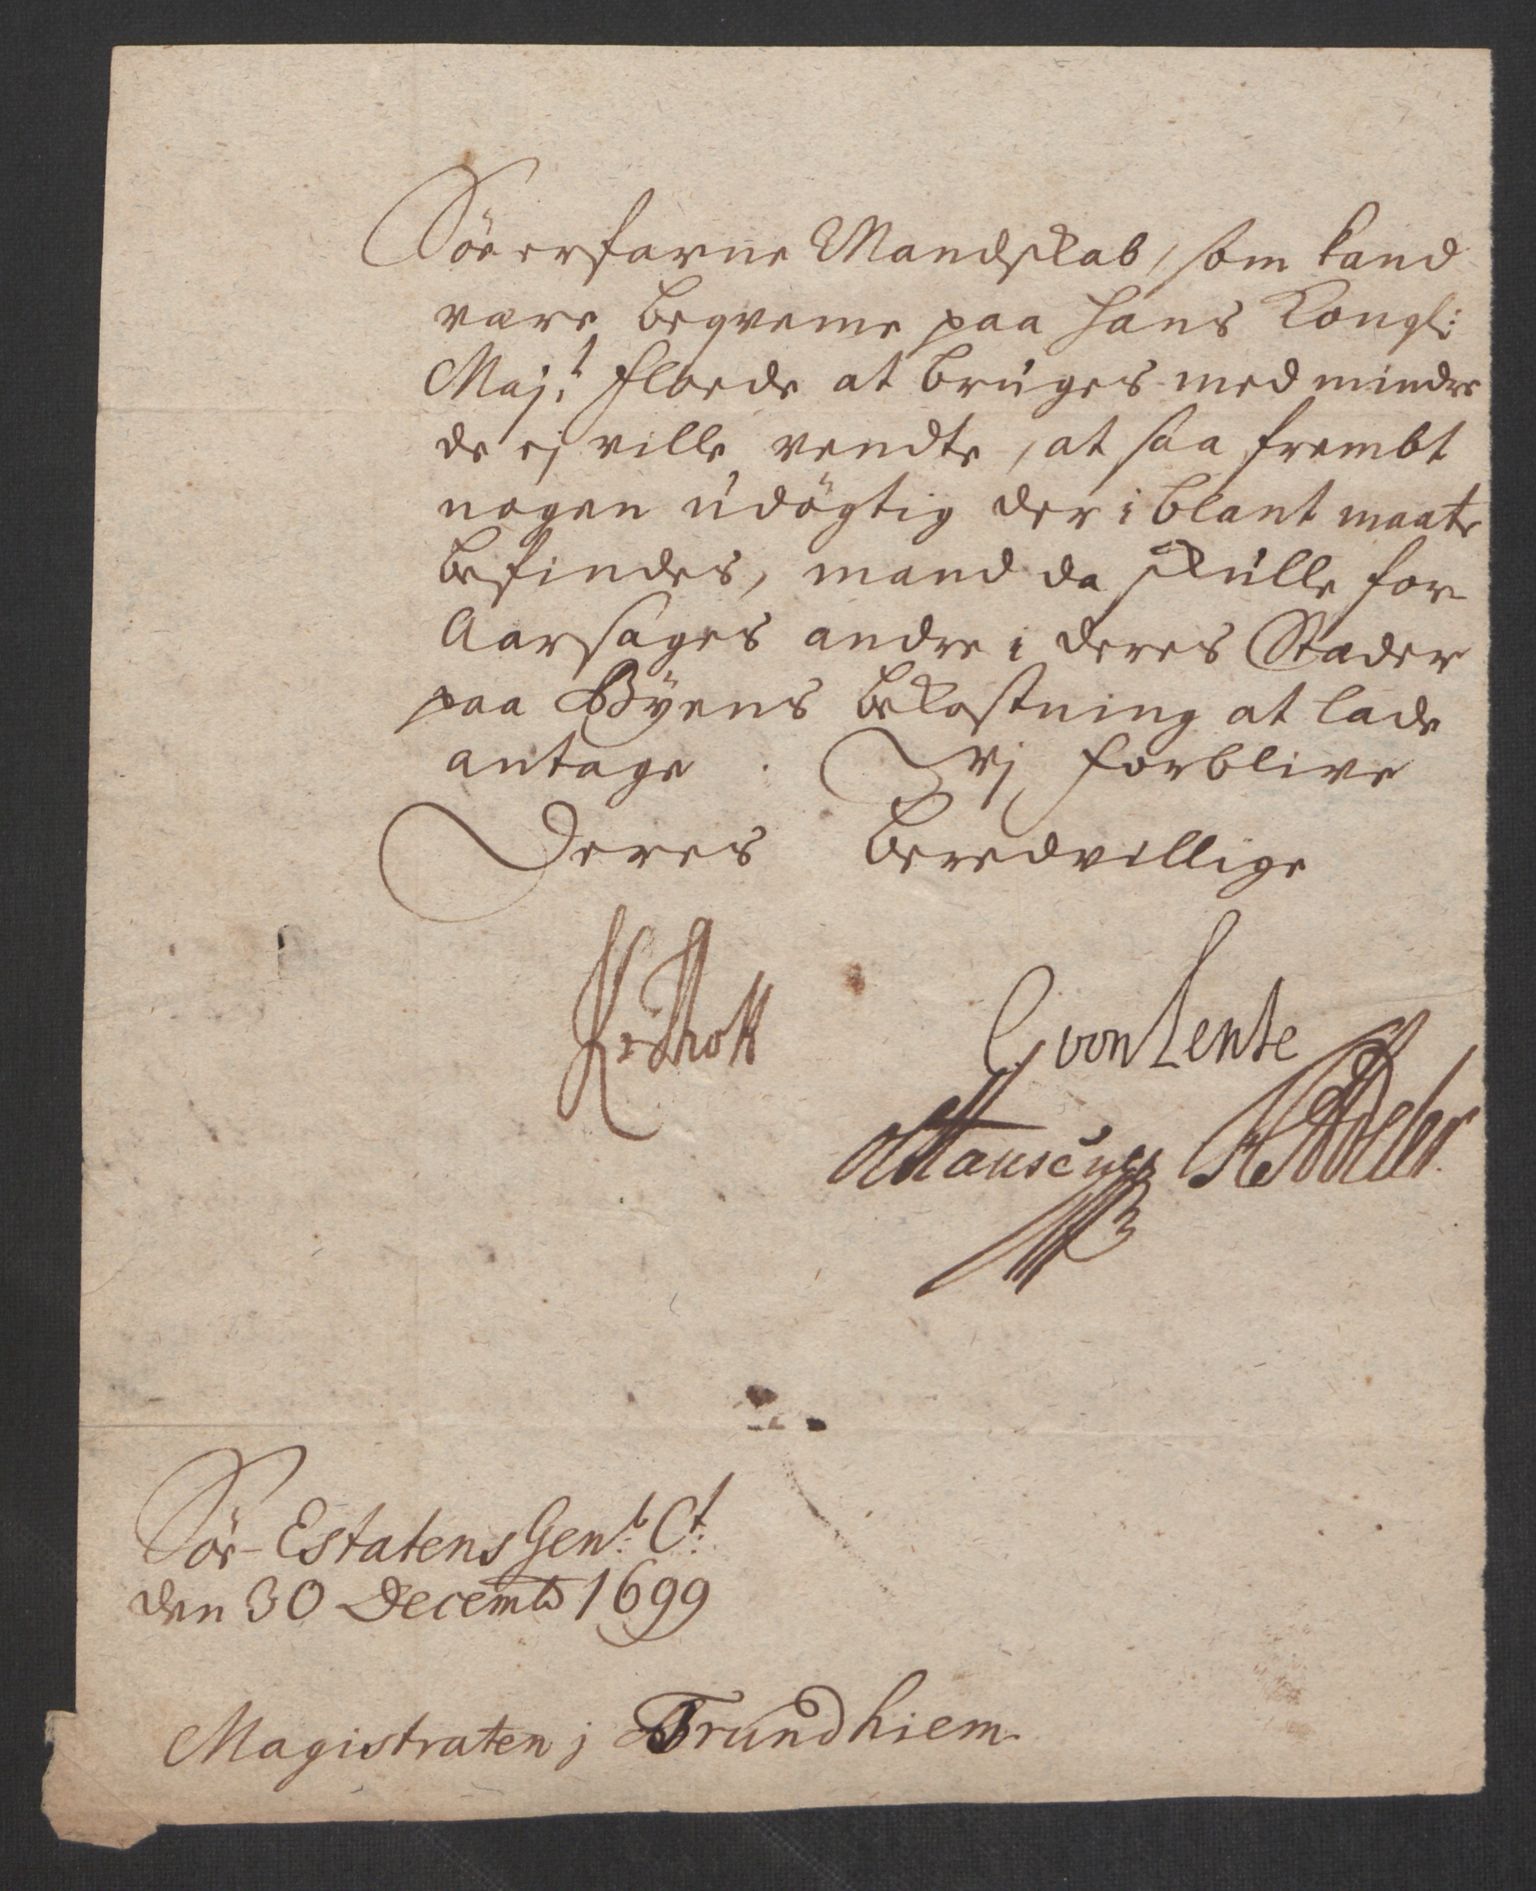 Söe erfarne Mandskab, som kand
være beqveme paa Hans Kongl:
Maj:t Floede at bruges med mindre
de ej ville vendte, at saa frembt
nogen udögtig der i blant maate
befindes, mand da skulle for
Aarsages andre i deres Stæder
paa Byens bekostning at lade
antage. Vj forblive
Deres beredvillige
C von Lente
Söe-Estatens Gen:l C:t
den 30 Decemb 1699
Magistraten j Trundhiem